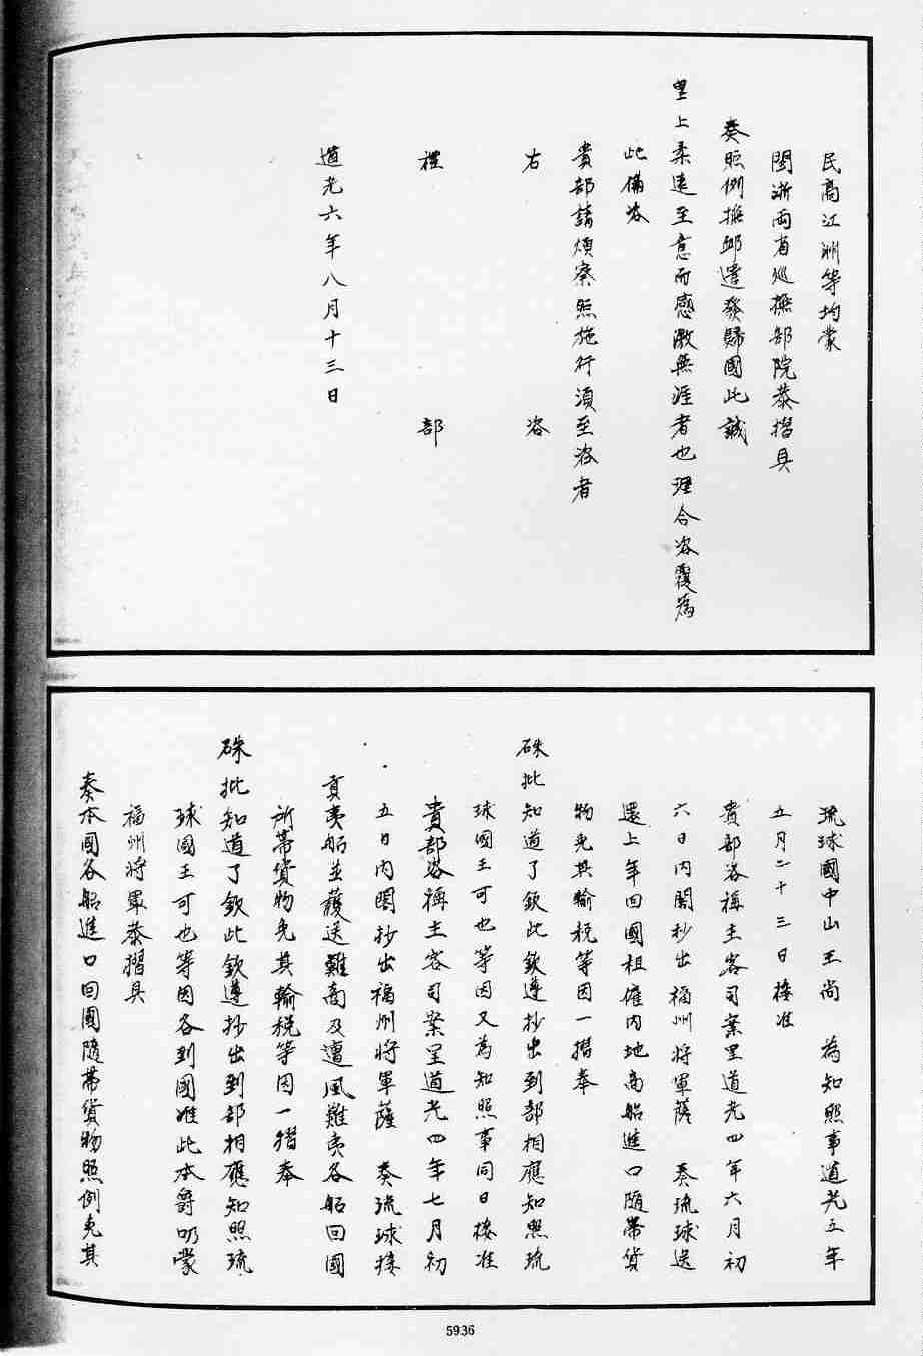 民高江洲等均蒙
閩浙兩省巡撫部院恭摺具
奏照例撫卹遣發歸國此誠
皇上柔遠至意而感激無涯者也理合咨覆為
此備咨
貴部請煩察照施行須至咨者
右咨
禮部
道光六年八月十三日
琉球國中山王尚　為知照事道光五年
五月二十三日接准
貴部咨稱主客司案呈道光四年六月初
六日內閣抄出福州將軍薩　奏琉球送
還上年回國租僱內地商船進口隨帶貨
物免其輸税等因一摺奉
硃批知道了欽此欽遵抄出到部相應知照琉
球國王可也等因又為知照事同日接准
貴部咨稱主客司案呈道光四年七月初
五日內閣抄出福州將軍薩　奏琉球接
貢夷船並護送難商及遭風難夷各船回國
所帶貨物免其輸税等因一摺奉
硃批知道了欽此欽遵抄出到部相應知照琉
球國王可也等因各到國准此本爵叨蒙
福州將軍恭摺具
奏本國各船進口回國隨帶貨物照例免其
5936